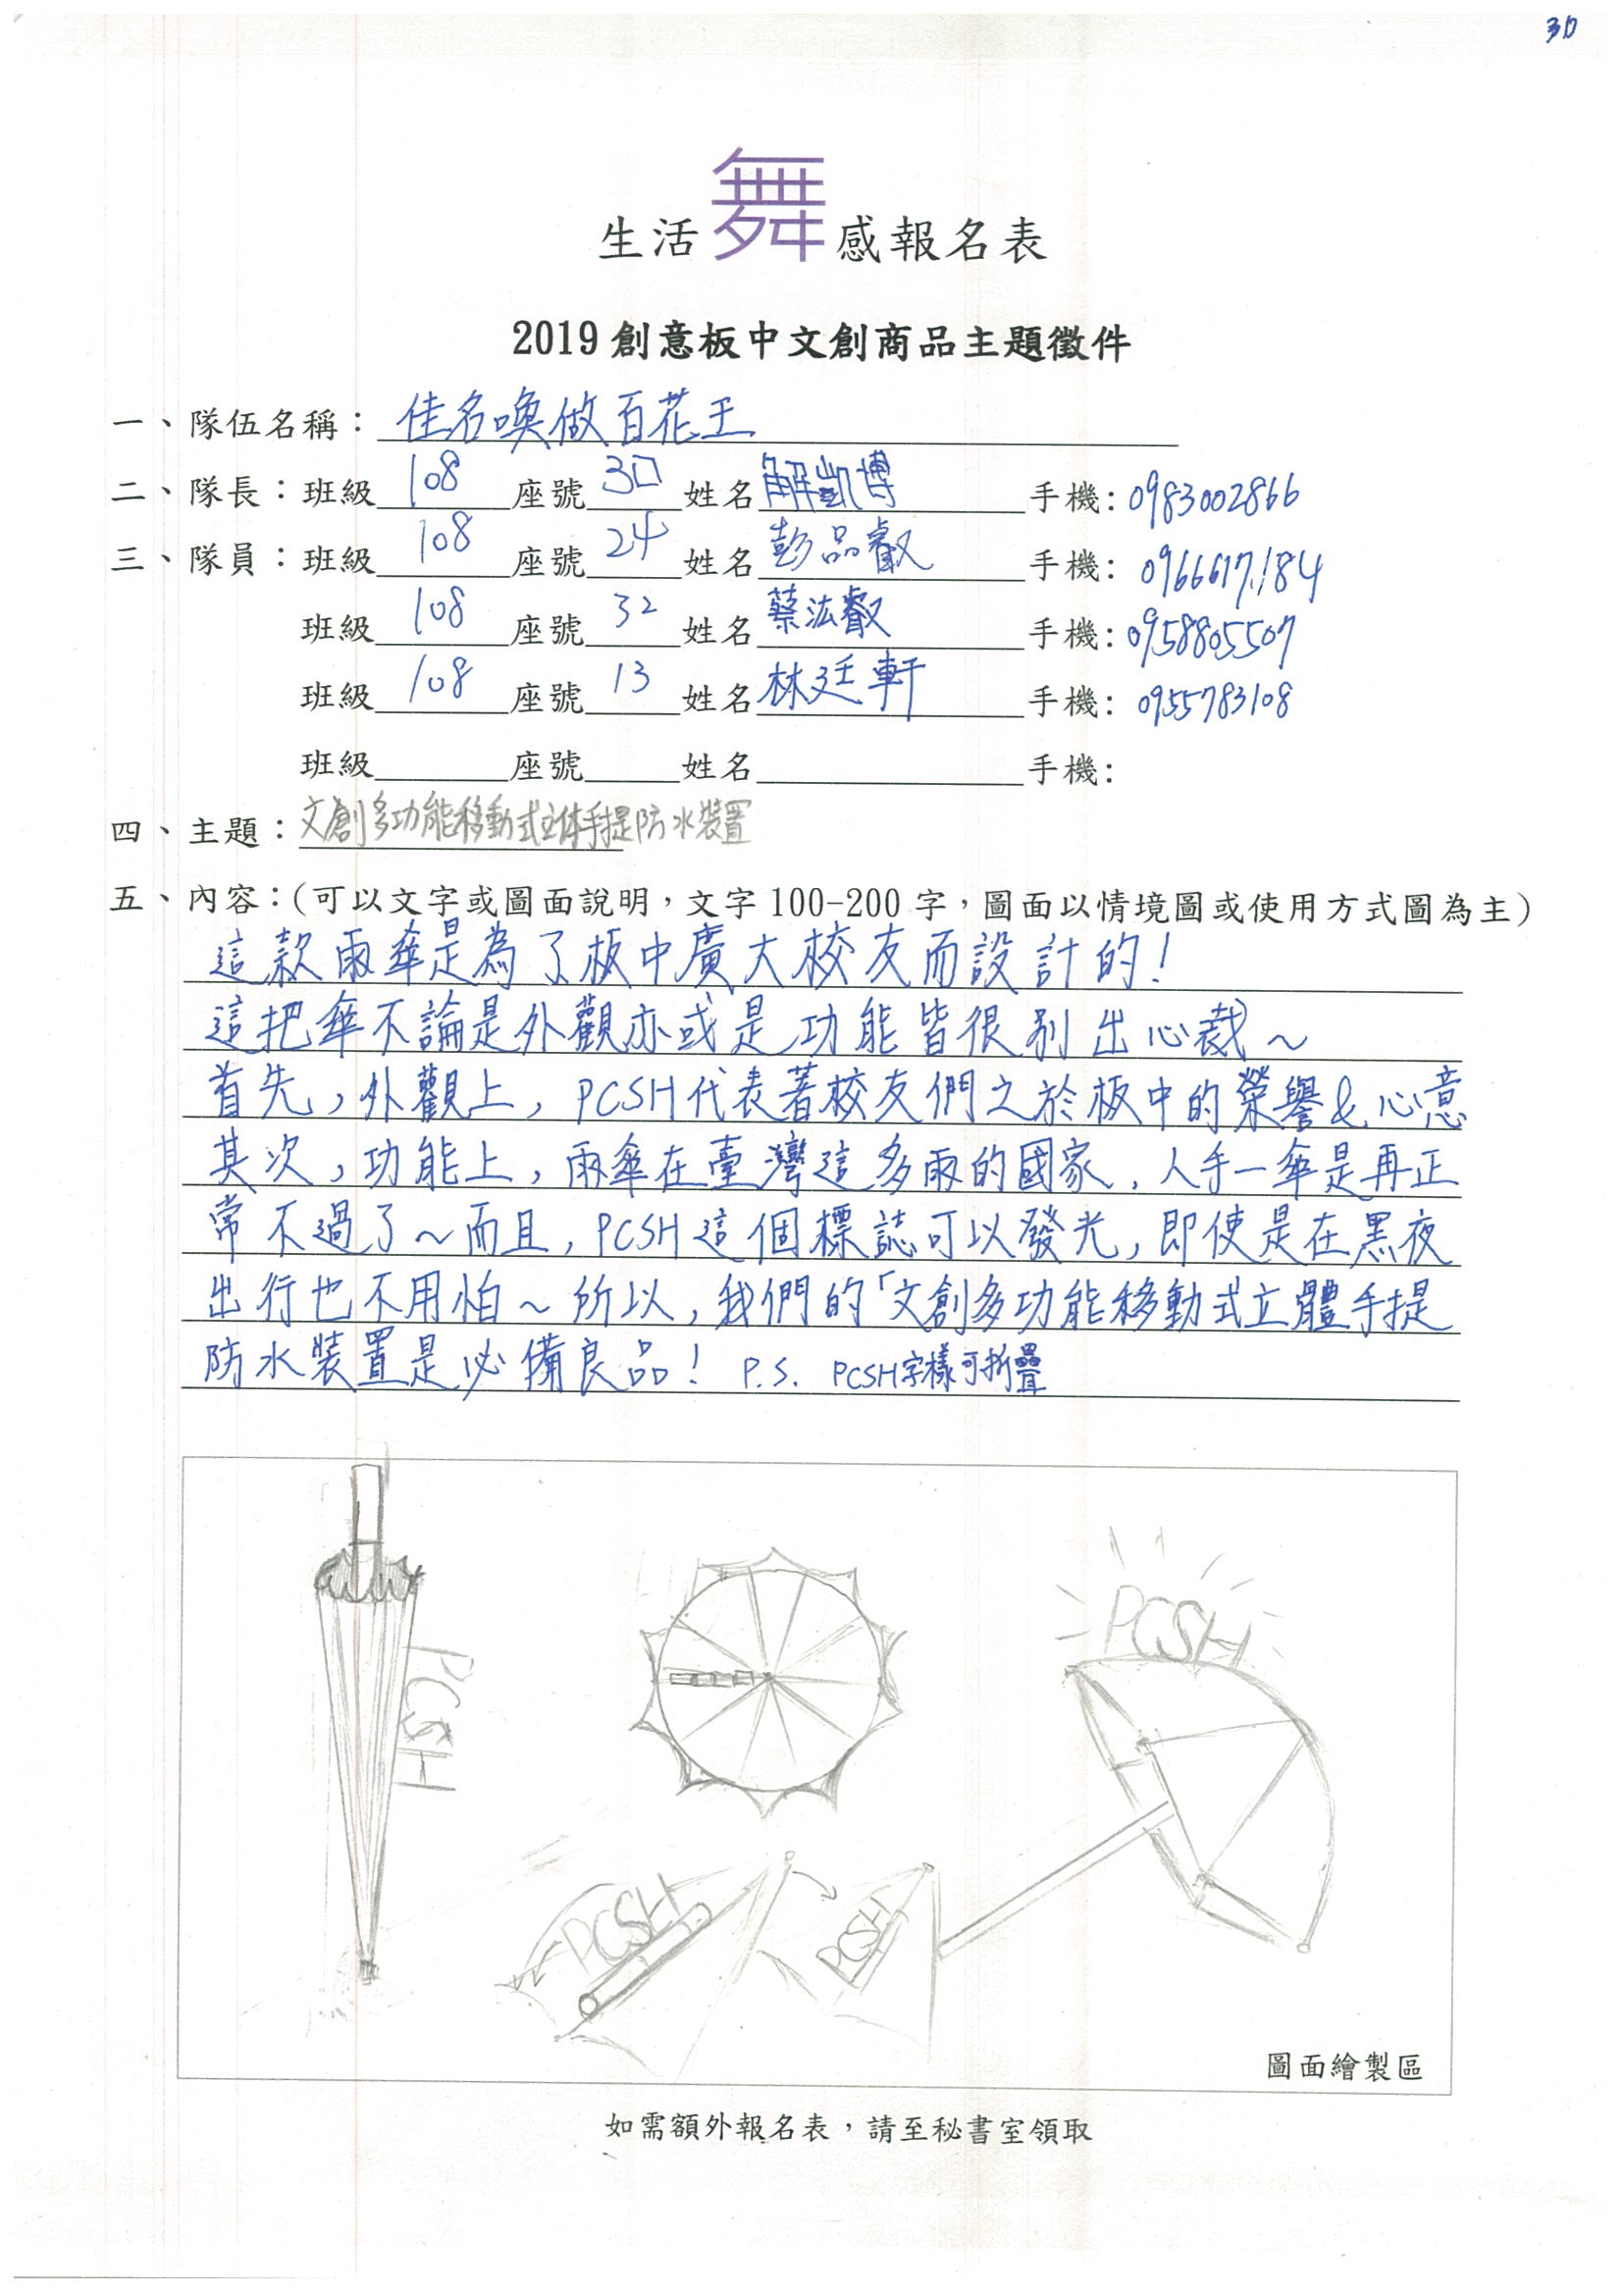 30
生活舞感報名表
2019創意板中文創商品主題徵件
一、隊伍名稱：佳名喚做百花王
二、隊長：班級 108 座號 30 姓名 解凱博 手機：0983002866
三、隊員：班級 108 座號 24 姓名 彭品叡 手機：0966617184
班級 108 座號 32 姓名 蔡法叡 手機：0958805507
班級 108 座號 13 姓名 林廷軒 手機：0955783108
班級 座號 姓名 手機：
四、主題：文創多功能移動式立体手提防水裝置
五、內容：(可以文字或圖面說明，文字100-200字，圖面以情境圖或使用方式圖為主)
這款雨傘是為了板中廣大校友而設計的！
這把傘不論是外觀亦或是功能皆很別出心裁～
首先，外觀上，PCSH代表著校友們之於板中的榮譽&心意
其次，功能上，雨傘在臺灣這多雨的國家，人手一傘是再正
常不過了～而且，PCSH這個標誌可以發光，即使是在黑夜
出行也不用怕～所以，我們的「文創多功能移動式立體手提
防水裝置是必備良品！ P.S. PCSH字樣可折疊
PCSH
PCSH
PCSH
PCSH
圖面繪製區
如需額外報名表，請至秘書室領取